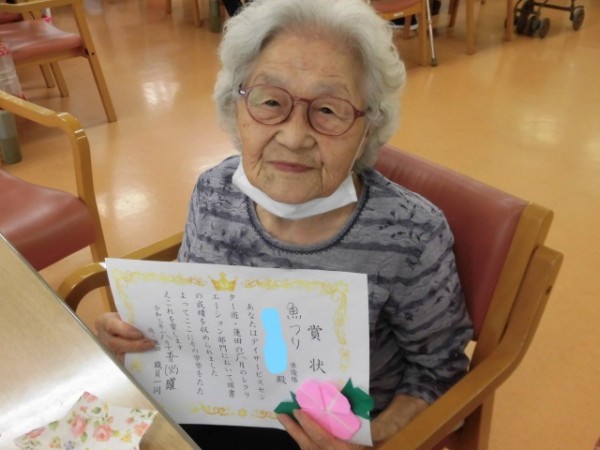 賞状
魚つり
準優勝
殿
あなたはデイサービスセン
ター遊・蓮田の六月のレクリ
エーション部門において頭書
の成績を収められました
よってここにその栄誉をたた
えこれを賞します
令和
職員一同